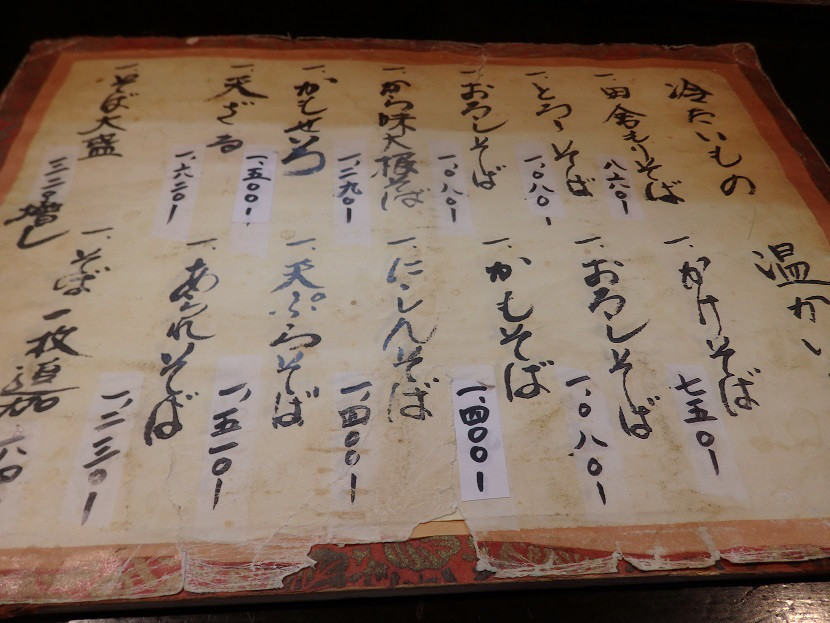 冷たいもの
一、田舎もりそば 八六〇ー
一、とろろそば 一、〇八〇ー
一、おろしそば 一、〇八〇ー
一、から味大根そば 一、二九〇ー
一、かもせいろ 一、五〇〇ー
一、天ざる 一、六二〇ー
一、そば大盛 三二〇増し
温かい
一、かけそば 七五〇ー
一、おろしそば 一、〇八〇ー
一、かもそば 一、四〇〇ー
一、にしんそば 一、四〇〇ー
一、天ぷらそば 一、五一〇ー
一、あられそば 一、二三〇ー
一、そば一枚追加